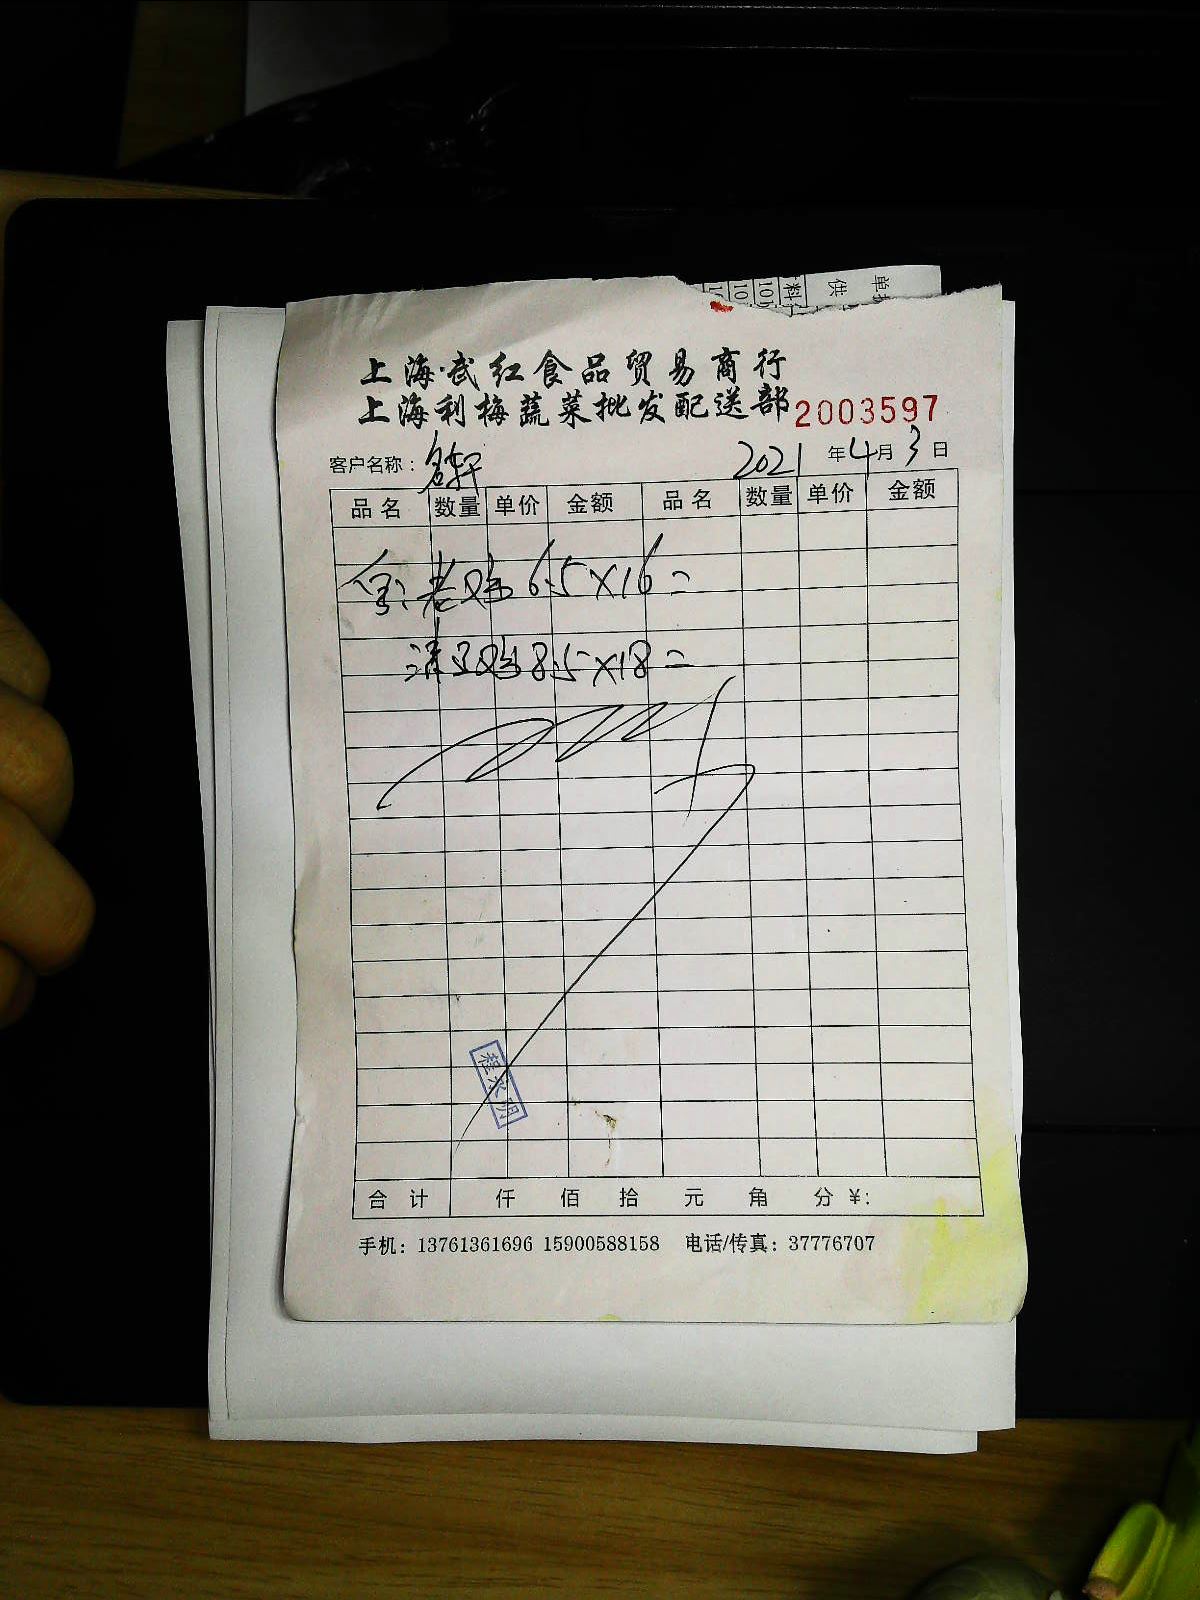 上海武红食品贸易商行
上海利梅蔬菜批发配送部 2003597
客户名称： 2021 年 4 月 3 日
品名 数量 单价 金额 品名 数量 单价 金额
老鸡 6.5×16=
清了鸡 8.5×18=
程永明
合计 仟 佰 拾 元 角 分 ¥:
手机：13761361696 15900588158 电话/传真：37776707